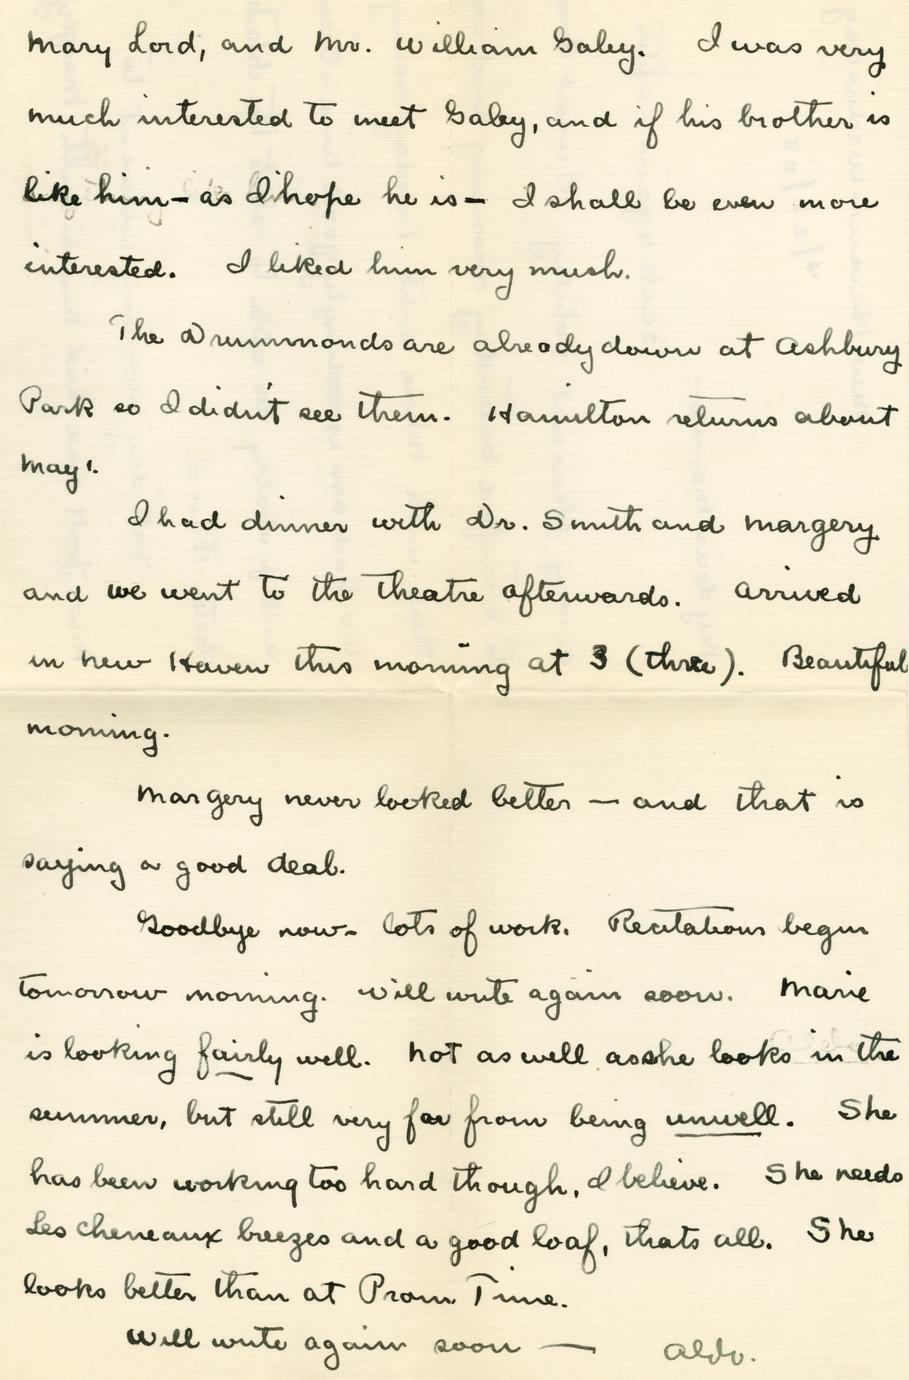 Mary Lord, and Mr. William Galey. I was very
much interested to meet Galey, and if his brother is
like him - as I hope he is - I shall be even more
interested. I liked him very much.
The Drummonds are already down at Ashbury
Park so I didn't see them. Hamilton returns about
May 1.
I had dinner with Dr. Smith and Margery
and we went to the theatre afterwards. Arrived
in New Haven this morning at 3 (three). Beautiful
morning.
Margery never looked better — and that is
saying a good deal.
Goodbye now - lots of work. Recitations begin
tomorrow morning. Will write again soon. Marie
is looking fairly well. Not as well as she looks in the
summer, but still very far from being unwell. She
has been working too hard though, I believe. She needs
Les Cheneaux breezes and a good loaf, thats all. She
looks better than at Prom Time.
Will write again soon — Aldo.